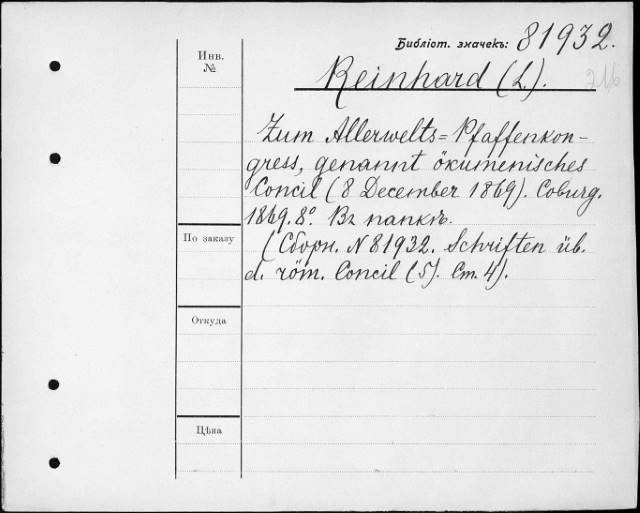 Библіот. значекъ: 81932.
Инв.
№
Reinhard (L.).
216
Zum Allerwelts=Pfaffenkon-
gress, genannt ökumenisches
Concil (8 December 1869). Coburg.
1869. 8º. Въ папкѣ.
По заказу
(Сборн. N 81932. Schriften üb.
d. röm. Concil (5). Ст. 4).
Откуда
Цѣна